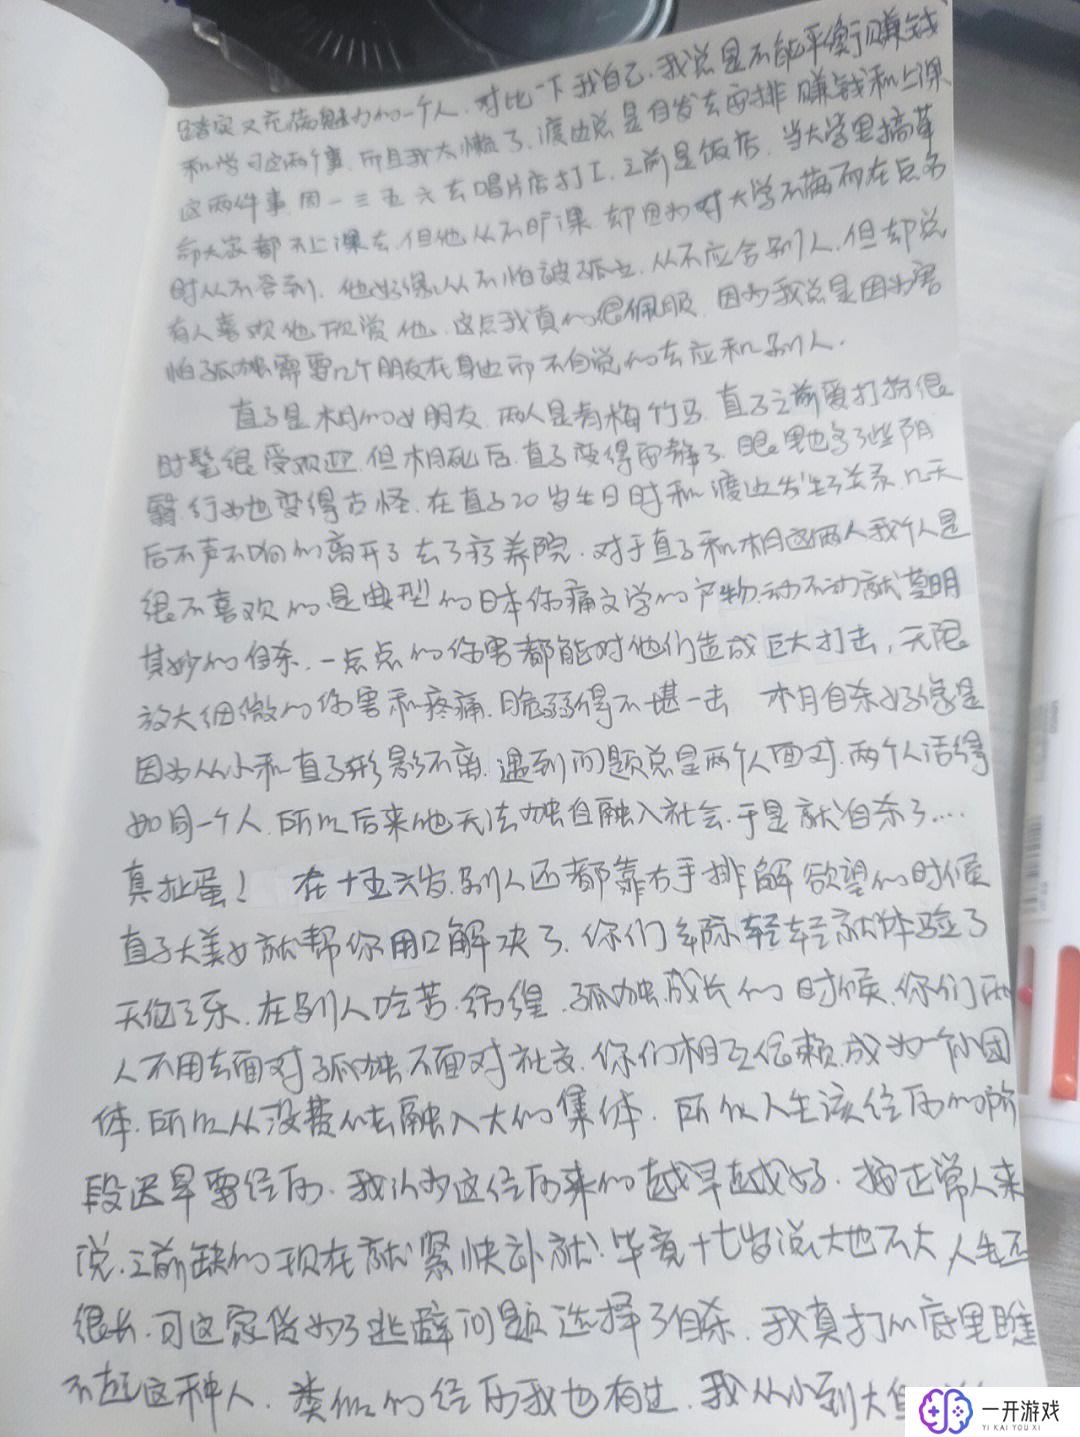 踏实又充满魅力的一个人.对比一下我自己.我总是不能平衡赚钱
和学习这两个事.而且我太懒了.渡边总是自发去安排赚钱和上课
这两件事.周一三五六去唱片店打工.之前是饭店.当大学里搞革
命大家都不上课去.但他从不旷课.却因为对大学不满而在点名
时从不答到.他好像从不怕被孤立.从不应合别人.但却说
有人喜欢他欣赏他.这点我真的很佩服.因为我总是因为害
怕孤独需要几个朋友在身边而不自觉的去应和别人.
直子是木月的女朋友.两人是青梅竹马.直子之前爱打扮很
时髦很受欢迎.但木月死后.直子变得安静了.眼里也多了些阴
翳.行为也变得古怪.在直子20岁生日时和渡边发生了关系.几天
后不声不响的离开了去了疗养院.对于直子和木月这两人我个人是
很不喜欢的是典型的日本伤痛文学的产物.动不动就莫明
其妙的自杀.一点点的伤害都能对他们造成巨大打击,无限
放大细微的伤害和疼痛.脆弱得不堪一击 木月自杀好像是
因为从小和直子形影不离.遇到问题总是两个人面对.两个人活得
如同一个人.所以后来他无法独自融入社会.于是就自杀了....
真扯蛋! 在十五六岁.别人还都靠右手排解欲望的时候
直子大美女就帮你用口解决了.你们年际轻轻就体验了
天伦之乐.在别人吃苦.彷徨.孤独.成长的时候.你们两
人不用去面对孤独.不面对社交.你们相互信赖.成为一个小团
体.所以从没费心去融入大的集体.所以人生该经历的阶
段迟早要经历.我认为这经历来的越早越好.按正常人来
说.之前缺的现在就紧快补就!毕竟十七岁说大也不大人生还
很长.可这家伙为了逃避问题选择了自杀.我真打从底里瞧
不起这种人.类似的经历我也有过.我从小到大
一开游戏
YI KAI YOU XI